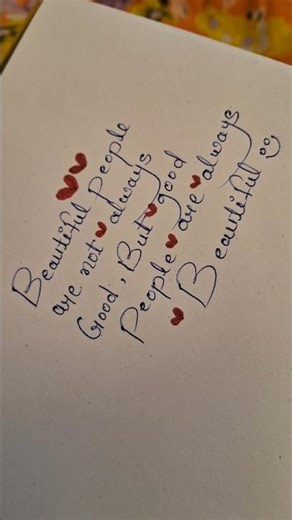 Beautiful People
are not always
Good, But good
People are always
Beautiful